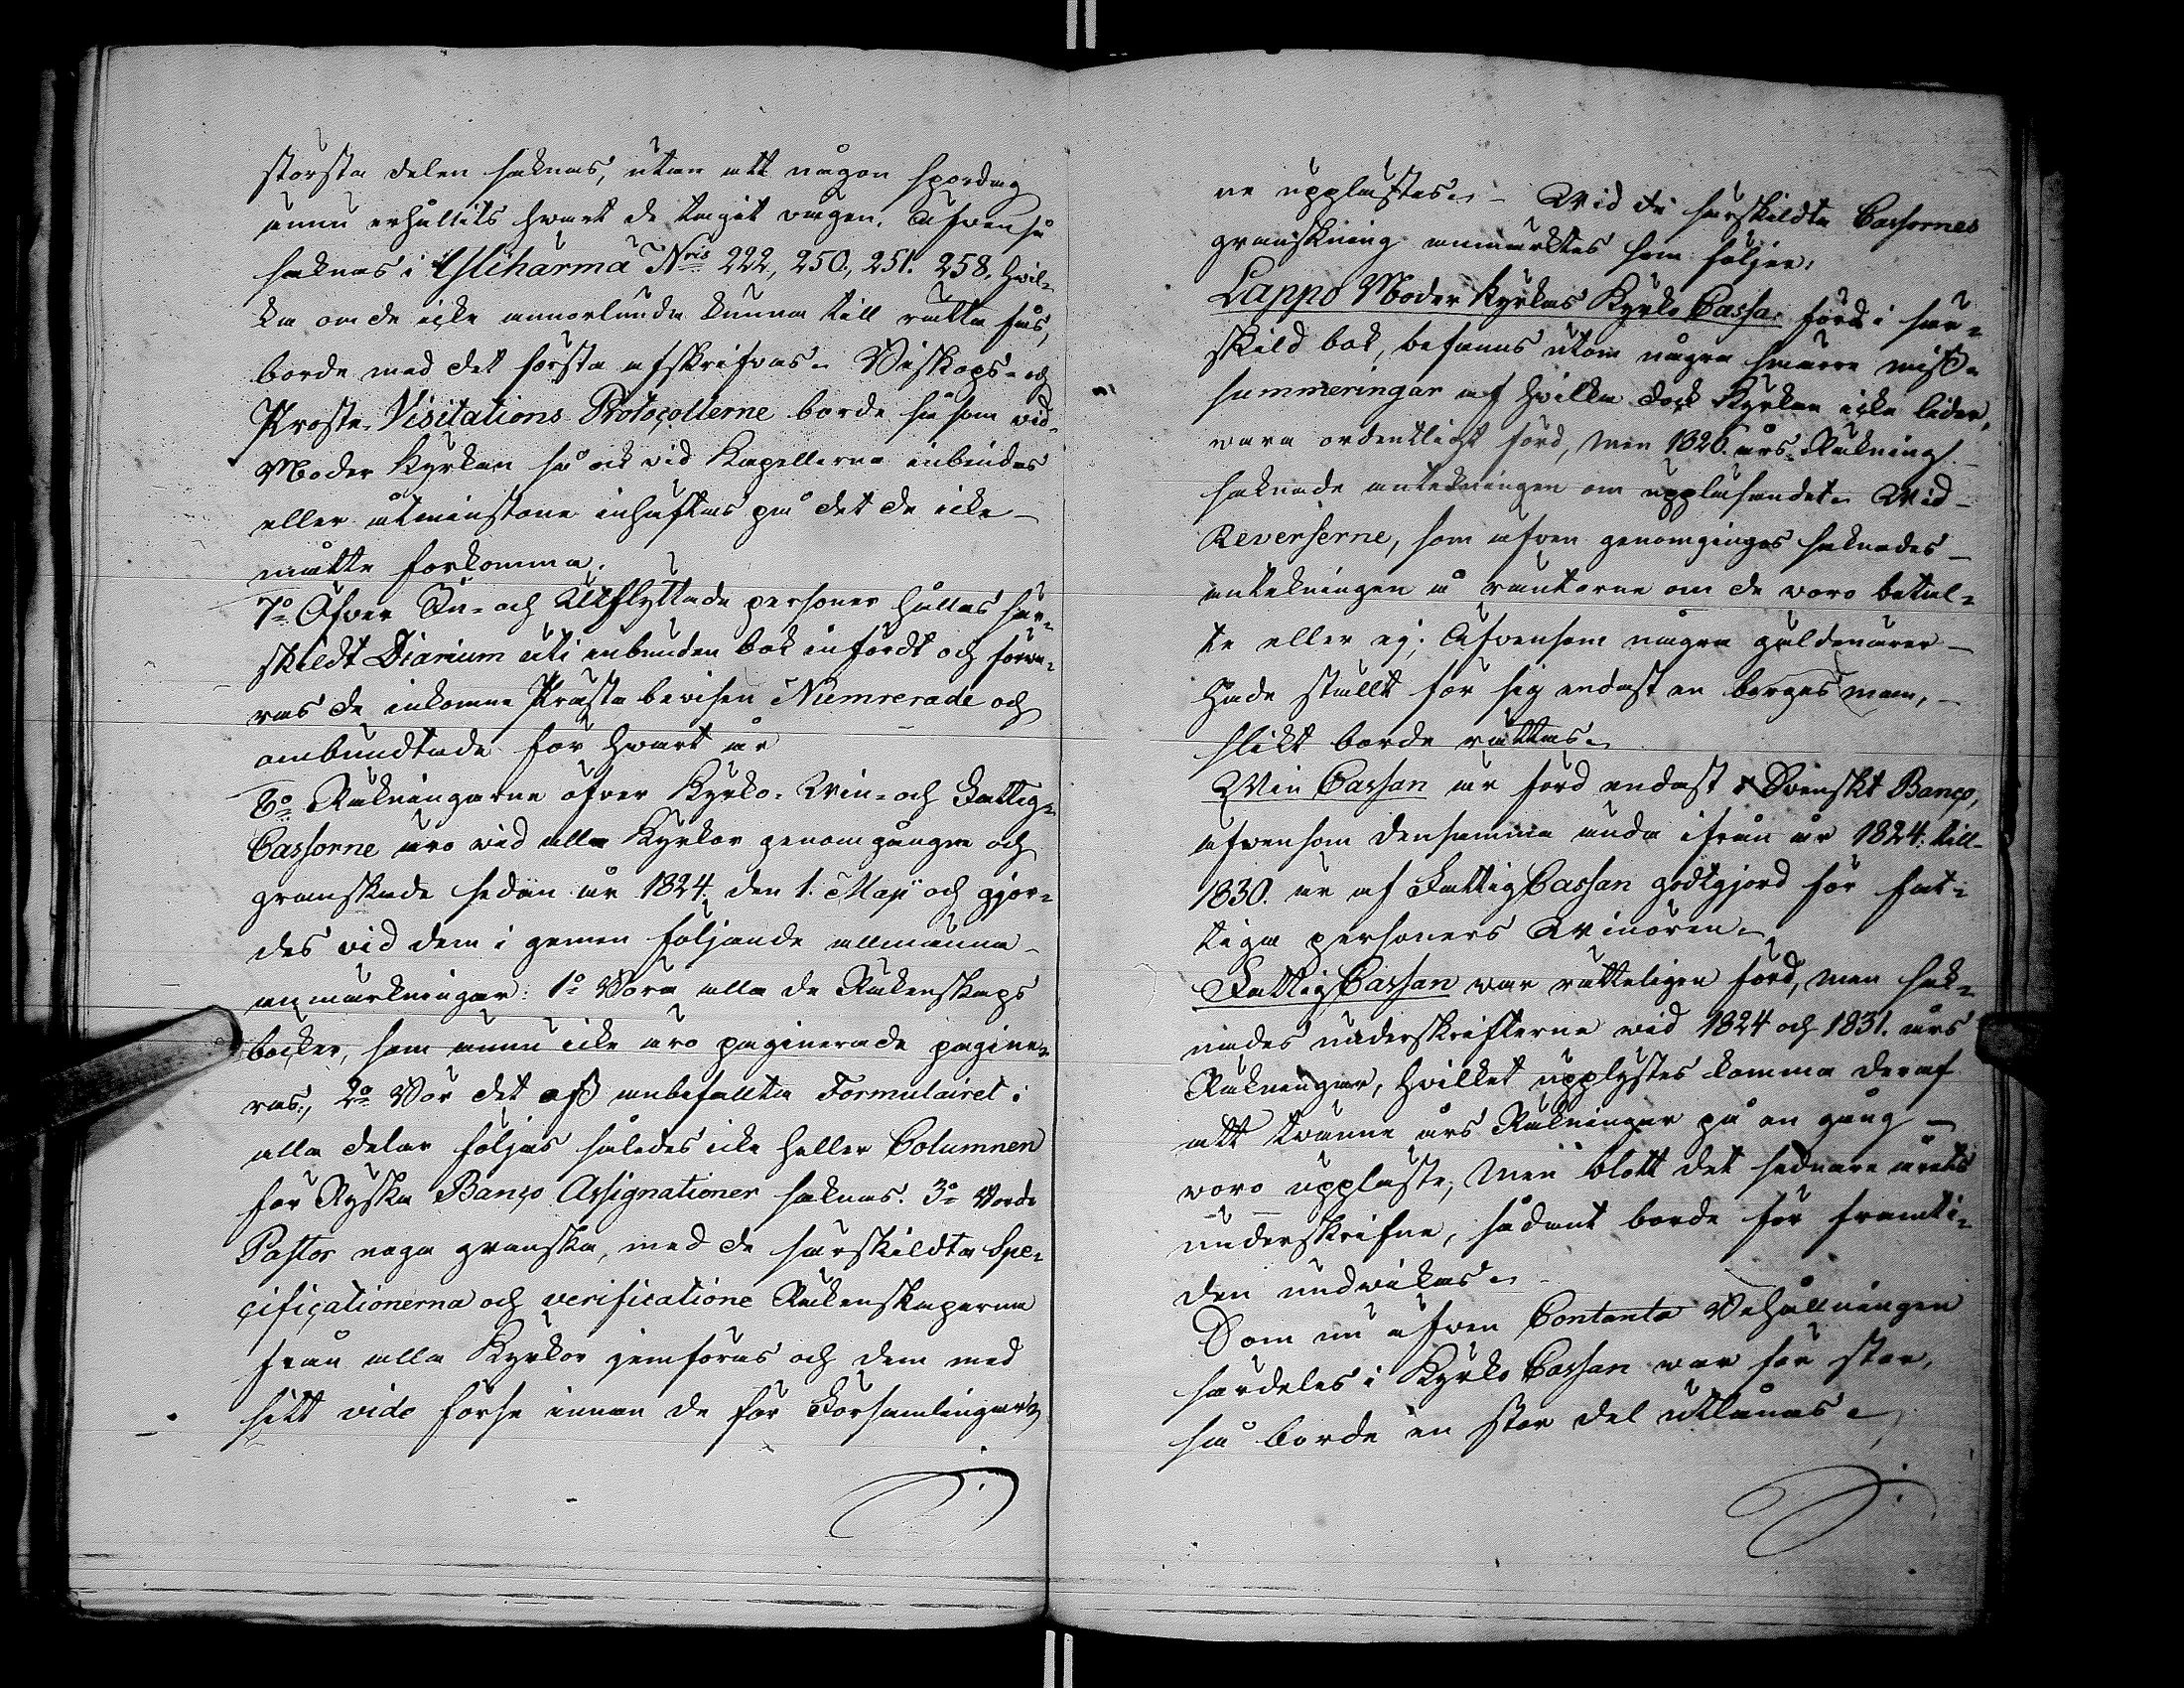 största delen saknas, utan att någon spordag
ännu erhållits hwart de tagit vägen. Äfvenså
saknas i Ylihärmä N:ris 222, 250, 251. 258, hvil-
ka om de icke annorlunda kunna till rätta fås,
borde med det första afskrifvas. Biskops- och
Prosts Visitations Protocollerne borde så som vid
Moder Kyrkan så ock vid Kapellerna inbindas
eller åtminstone inhäftas på det de icke
måtte förkomma.
7:o Öfver In- och Utflyttade personer hålles sär-
skildt Diarium uti inbunden bok infördt och förva-
ras de inkomne Prästa bevisen Numrerade och
ombundtade för hvart år
8:o Räkningarne öfver Kyrko- Win- och Fattig-
Cassorne äro vid alla Kyrkor genomgångne och
granskade sedan år 1824. den 1. Maji och gjor-
des vid dem i gemen följande allmänna
anmärkningar: 1:o Böra alla de Räkenskaps
böcker, som ännu icke äro paginerade pagine-
ras, 2:o Bör det oss anbefallta Formulairet i
alla delar följas således icke heller Columnen
för Ryska Banco Assignationer saknas. 3:o Borde
Pastor noga granska, med de särskildta Spe-
cificationerna och verificatione Räkenskaperna
från alla Kyrkor jemföras och dem med
sitt vide förse innan de för Församlingar-
ne uppläsas. Wid de särskildta Cassornes
granskning anmärktes som följer:
Lappo Moder Kyrkas Kyrko Cassa förd i sär-
skild bok, befanns utom några smärre miss-
summeringar af hvilka dock Kyrkan icke lider,
vara ordentligt förd, men 1826. års Räkning
saknade antekningen om uppläsandet. Wid
Reverserne, som äfven genomgingos saknades
antekningen å räntorne om de voro betal-
te eller ej; Äfvensom några gäldenärer
hade ställt för sig endast en borgesman,
slikt borde rättas.
Win Cassan är förd endast i Svenskt Banco,
äfvensom densamma ända ifrån år 1824. till
1830. är af Fattig Cassan godtgjord för fat-
tiga personers Winören.
Fattig Cassan war rätteligen förd, men sak-
nades underskrifterne vid 1824 och 1831. års
Räkningar, hvilket upplystes komma deraf
att tvänne års Räkningar på en gång
voro uppläste, men blott det sednare årets
underskrifne, sådant borde för framti-
den undvikas.
Som nu äfven Contanta Behållningen
särdeles i Kyrko Cassan war för stor,
så borde en stor del utlånas.